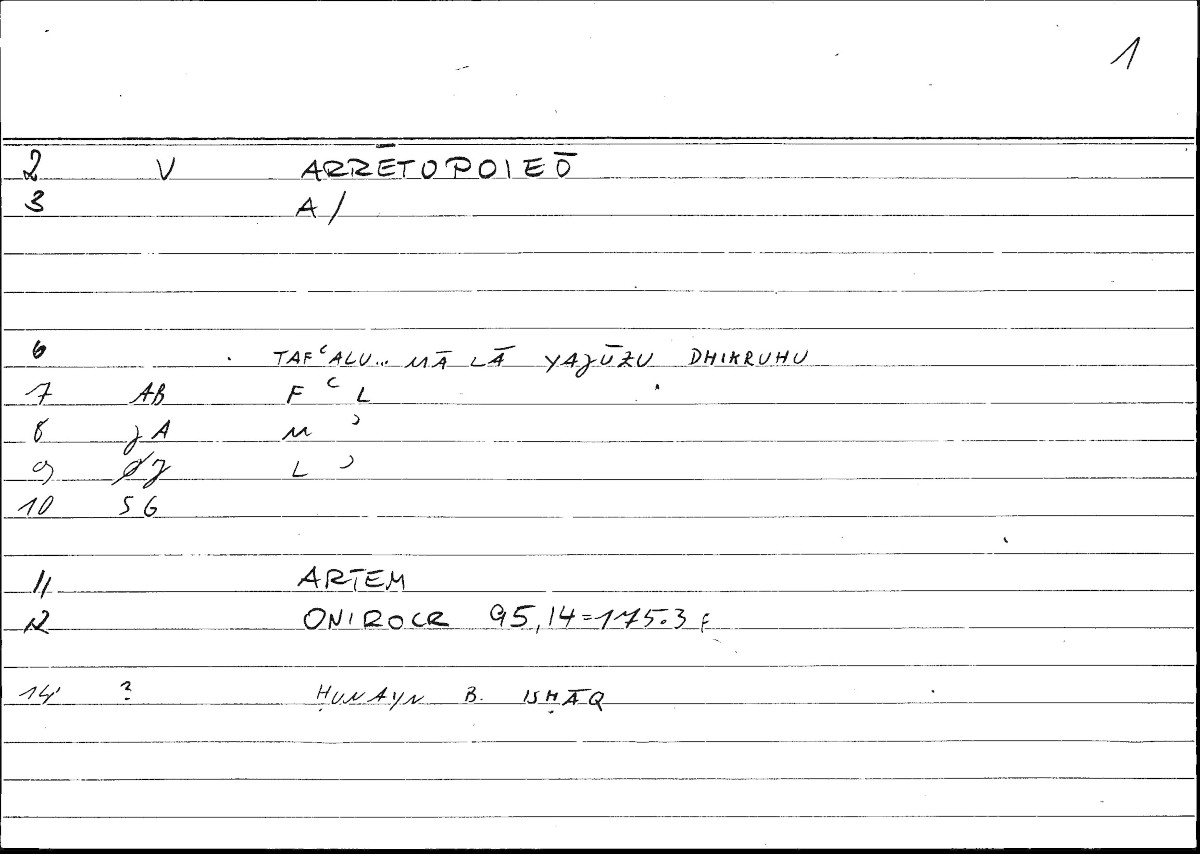 1
2 V ARRĒTOPOIEŌ
3 A/
6 TAFʿALU... MĀ LĀ YAJŪZU DHIKRUHU
7 AB F ʿ L
8 JA M ʾ
9 J L ʾ
10 SG
11 ARTEM
12 ONIROCR 95,14=175.3 F
14 ? ḤUNAYN B. ISḤĀQ